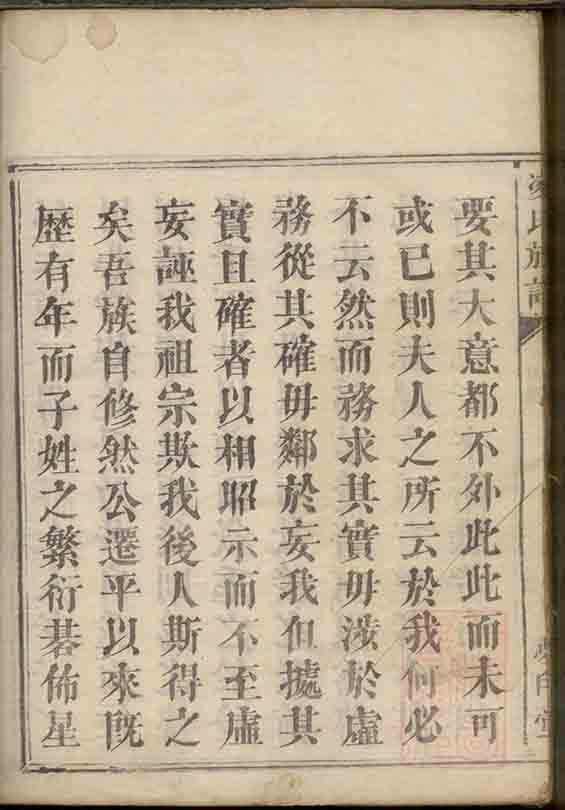 要其大意都不外此此而未可
或已則夫人之所云於我何必
不云然而務求其實毋涉於虛
務從其確毋鄰於妄我但據其
實且確者以相昭示而不至虛
妄誣我祖宗欺我後人斯得之
矣吾族自修然公遷平以來既
歷有年而子姓之繁衍碁佈星